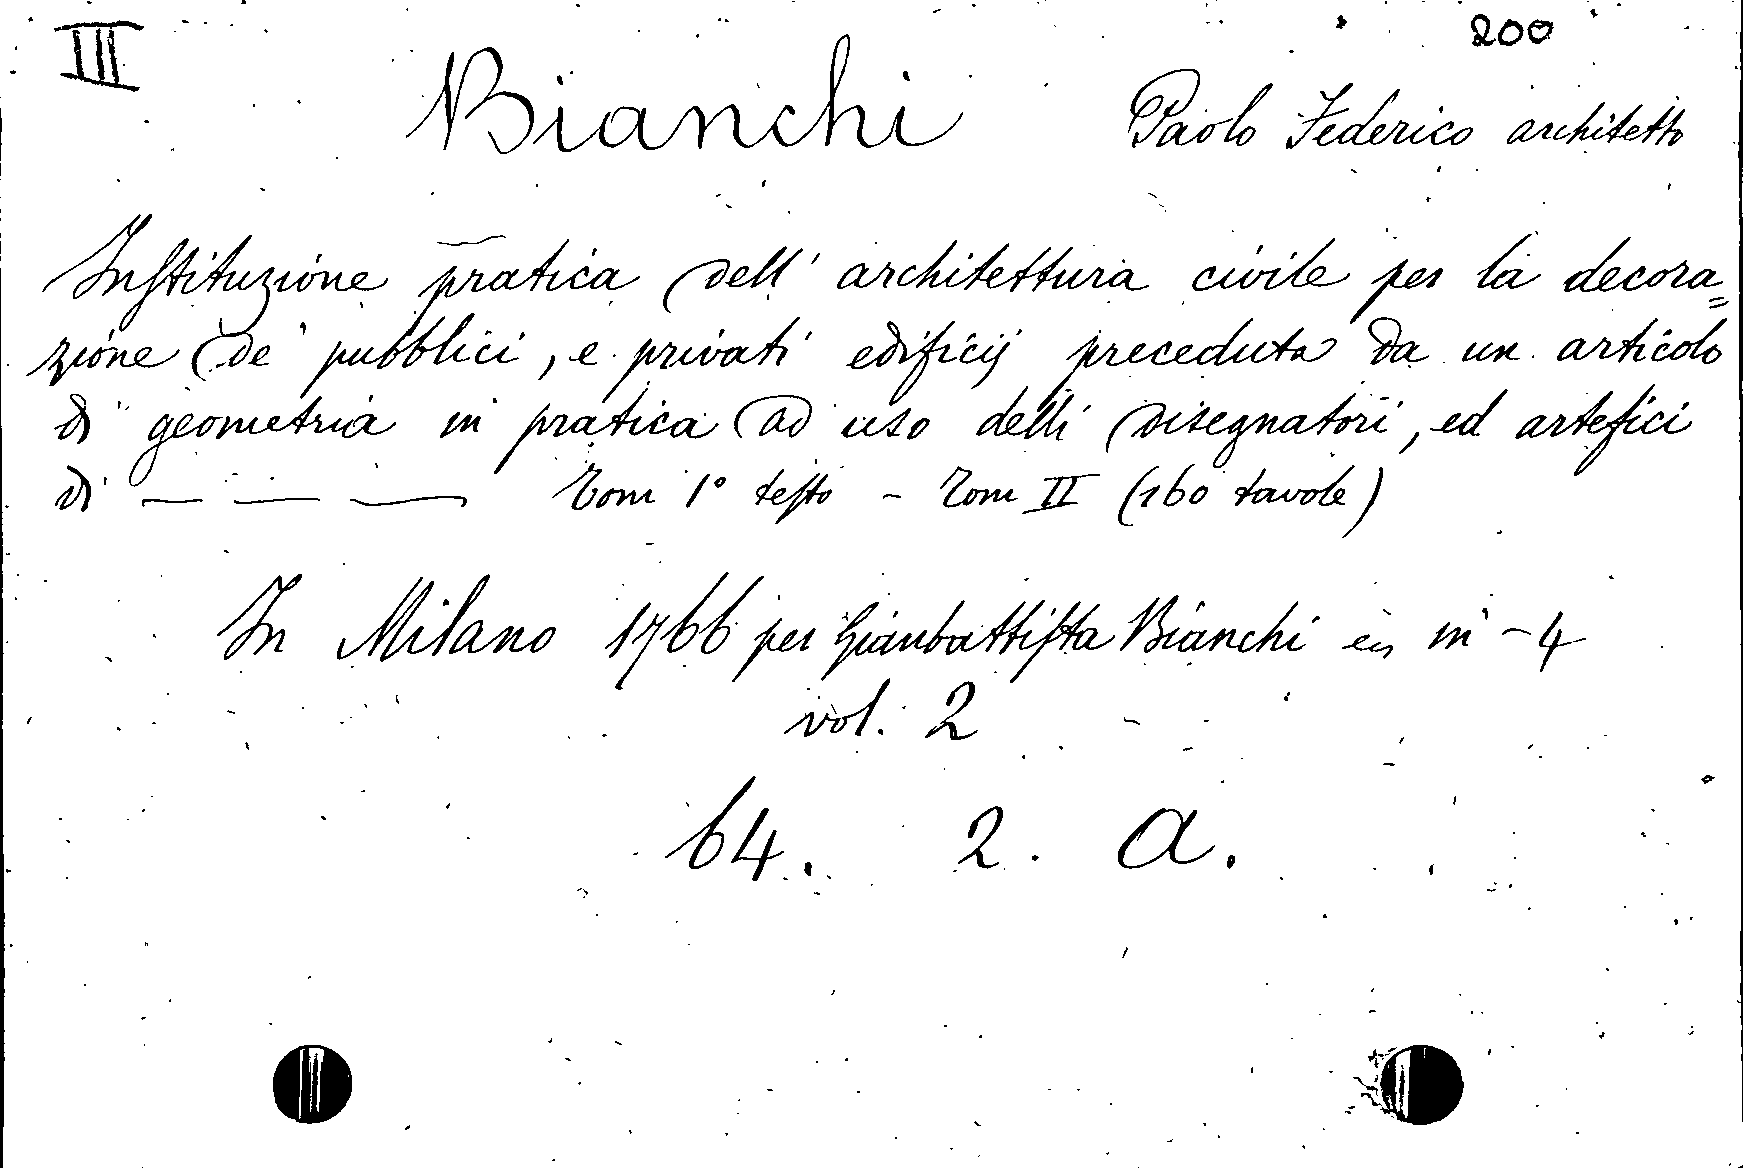 III
200
Bianchi Paolo Federico architetto
Instituzione pratica dell' architettura civile per la decora=
zione de' pubblici, e privati edificij preceduta da un articolo
di geometria in pratica ad uso delli disegnatori, ed artefici
di — — — Tom 1° testo - Tom II (160 tavole)
In Milano 1766 per Gianbattista Bianchi in -4
vol. 2
64. 2. A.